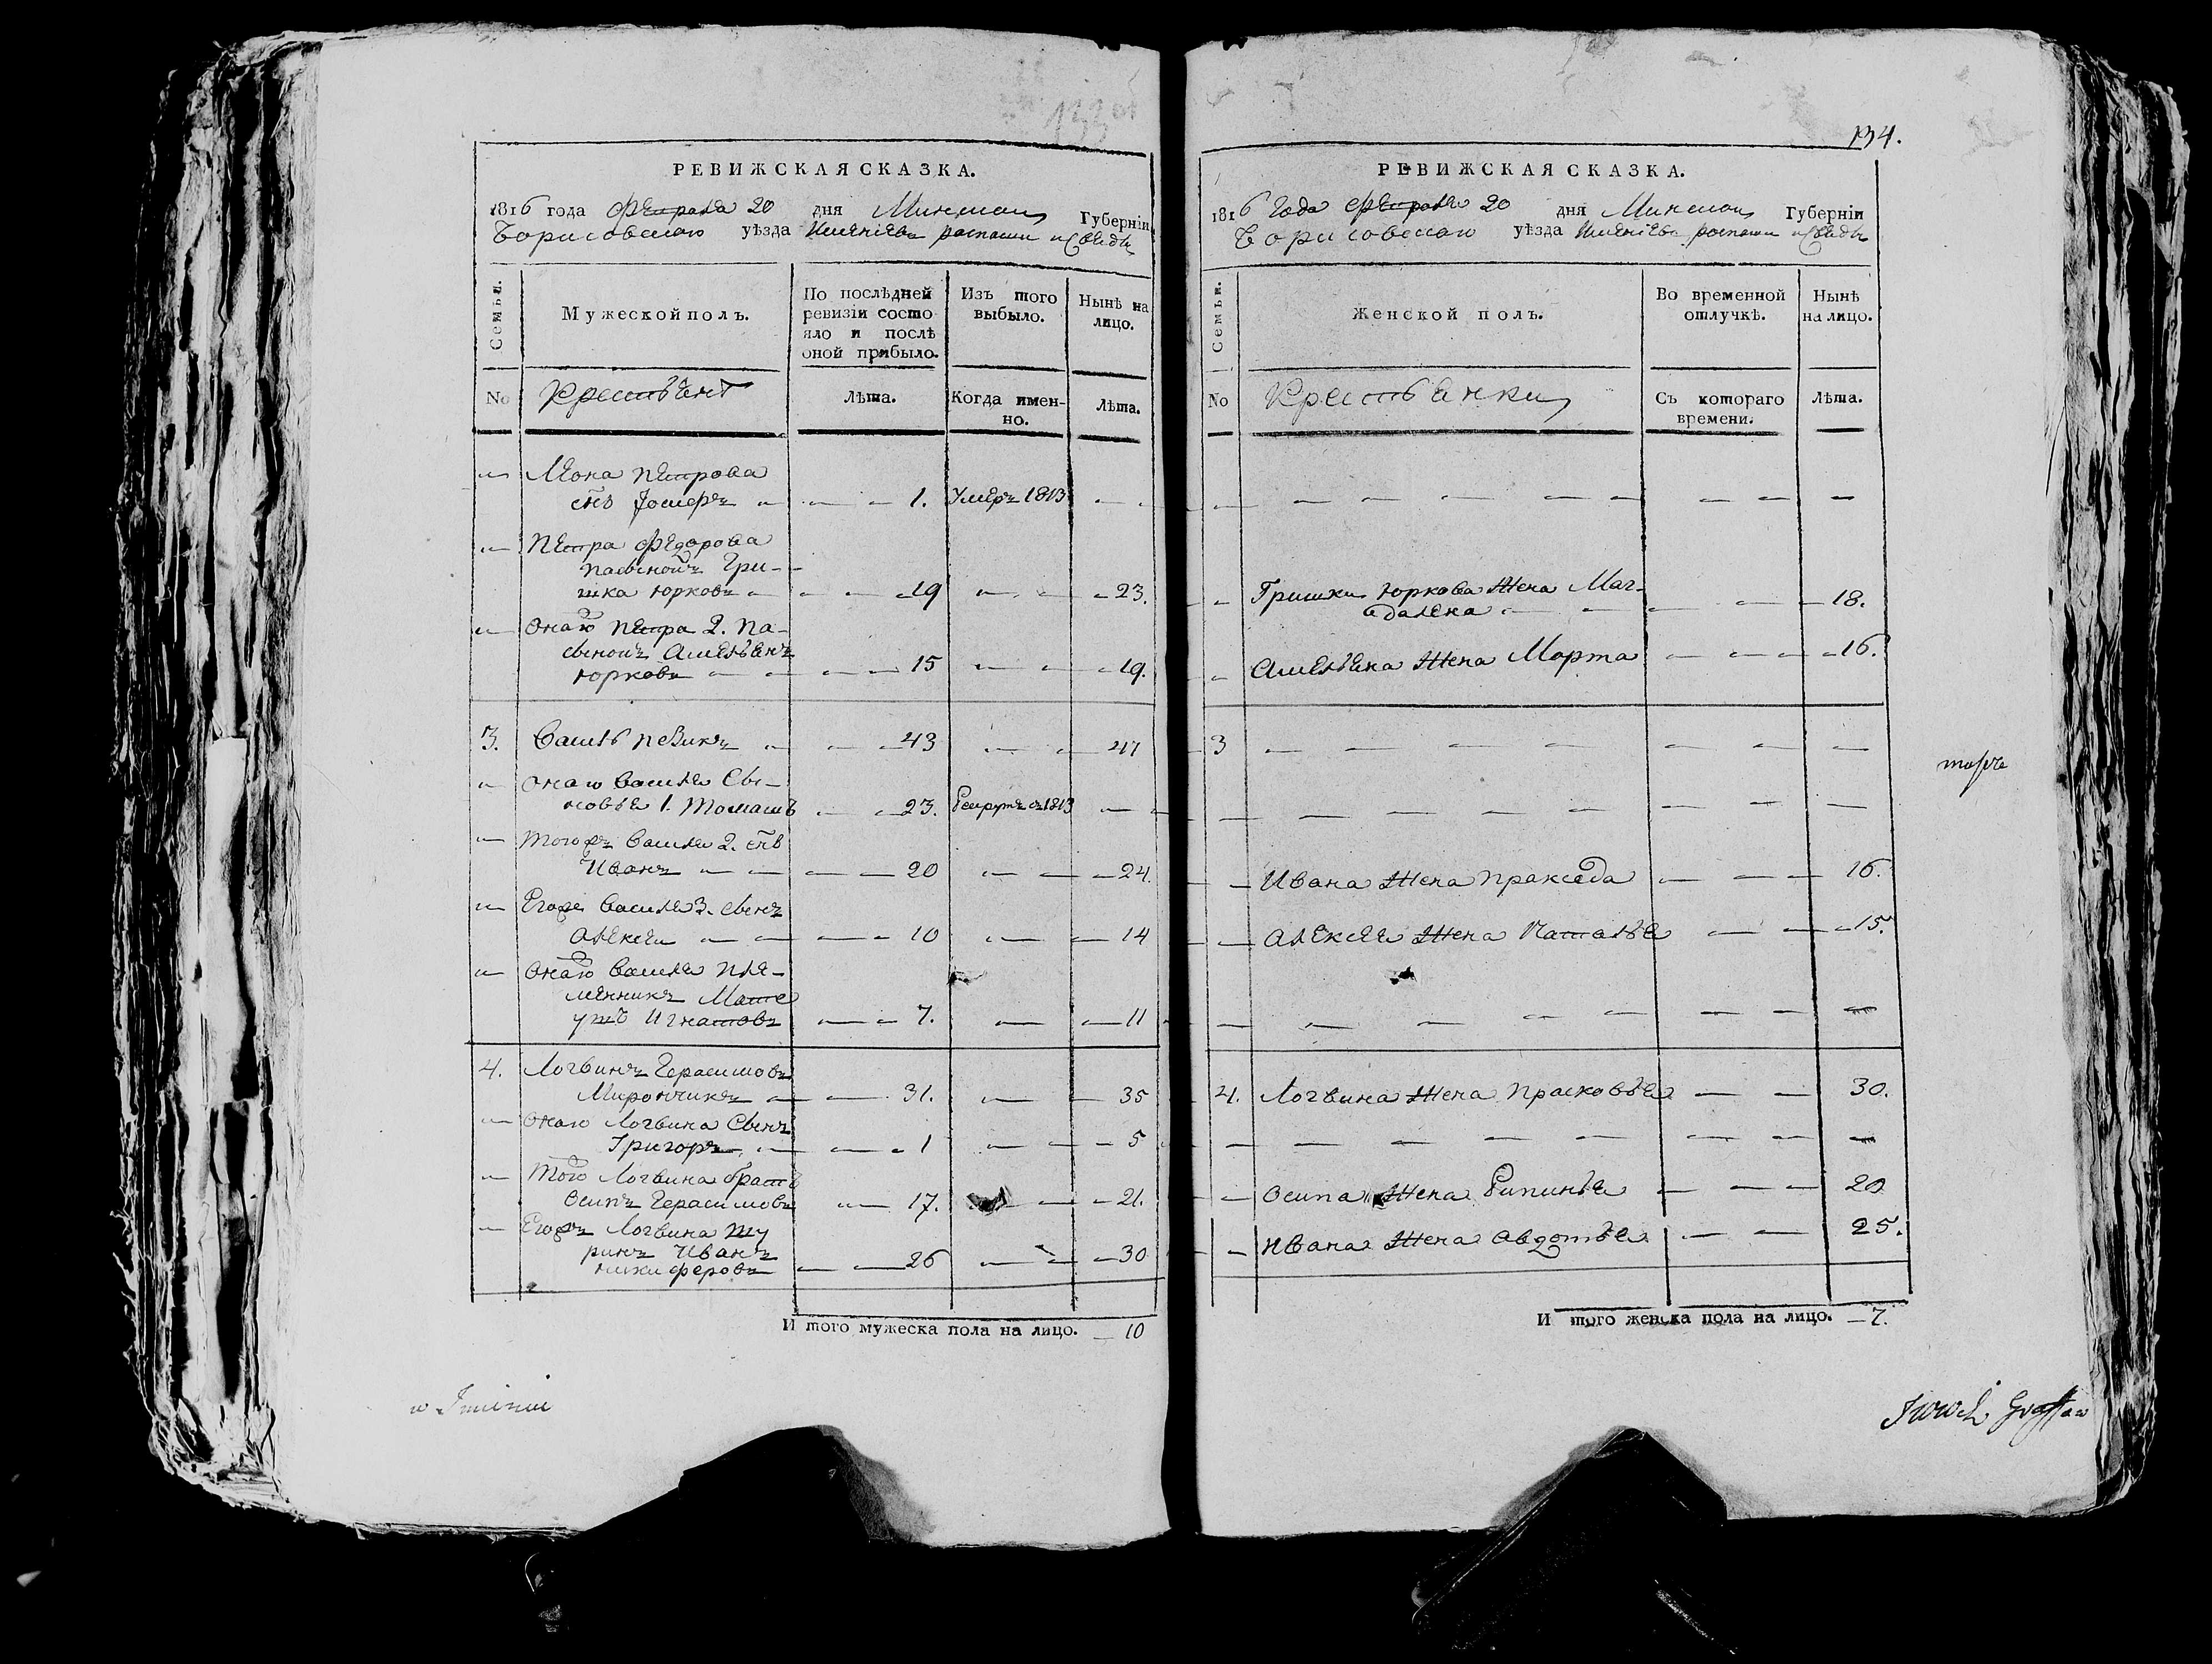 133 об
РЕВИЖСКАЯ СКАЗКА.
1816 года февраля 20 дня Минской Губерніи
Борисовскаго уѣзда
Семьи.
Мужеской полъ.
По послѣдней ревизіи состояло и послѣ оной прибыло.
Изъ того выбыло.
Нынѣ на лицо.
No
Крестьянъ
Лѣта.
Когда именно.
Лѣта.
Леона Петрова
снъ Іосифъ — 1. Умеръ 1813
Петра Федорова
пасынокъ Гри-
шка Юрковъ — 19 — 23.
Онаго Петра 2. па-
сынокъ Амельянъ
Юрковъ — 15 — 19.
3. Василь Певикъ — 43 — 47
Онаго Василя Сы-
новья 1. Томашъ — 23. Рекрутъ съ 1813
Тогожъ Василя 2. снъ
Иванъ — 20 — 24.
Егожъ Василя 3. сынъ
Алексѣй — 10 — 14
Онаго Василя пле-
менникъ Мате
ушъ Игнатовъ — 7. — 11
4. Логвинъ Герасимовъ
Мирончикъ — 31. — 35
Онаго Логвина Сынъ
Григоръ — 1 — 5
Того Логвина братъ
Осипъ Герасимовъ — 17. — 21.
Егожъ Логвина шу
ринъ Иванъ
Никифоровъ — 26 — 30
И того мужеска пола на лицо. — 10
134.
РЕВИЖСКАЯ СКАЗКА.
1816 года февраля 20 дня Минской Губерніи
Борисовскаго уѣзда
Семьи.
Женской полъ.
Во временной отлучкѣ.
Нынѣ на лицо.
No
Крестьянки
Съ котораго времени.
Лѣта.
Гришки Юркова Жена Маг-
далена — 18.
Амельяна Жена Марта — 16.
3
Ивана Жена Праксѣда — 16.
Алексѣя Жена Наталья — 15.
4. Логвина Жена Прасковья — 30.
Осипа Жена — 20
Ивана Жена Авдотья — 25.
И того женска пола на лицо. — 7.